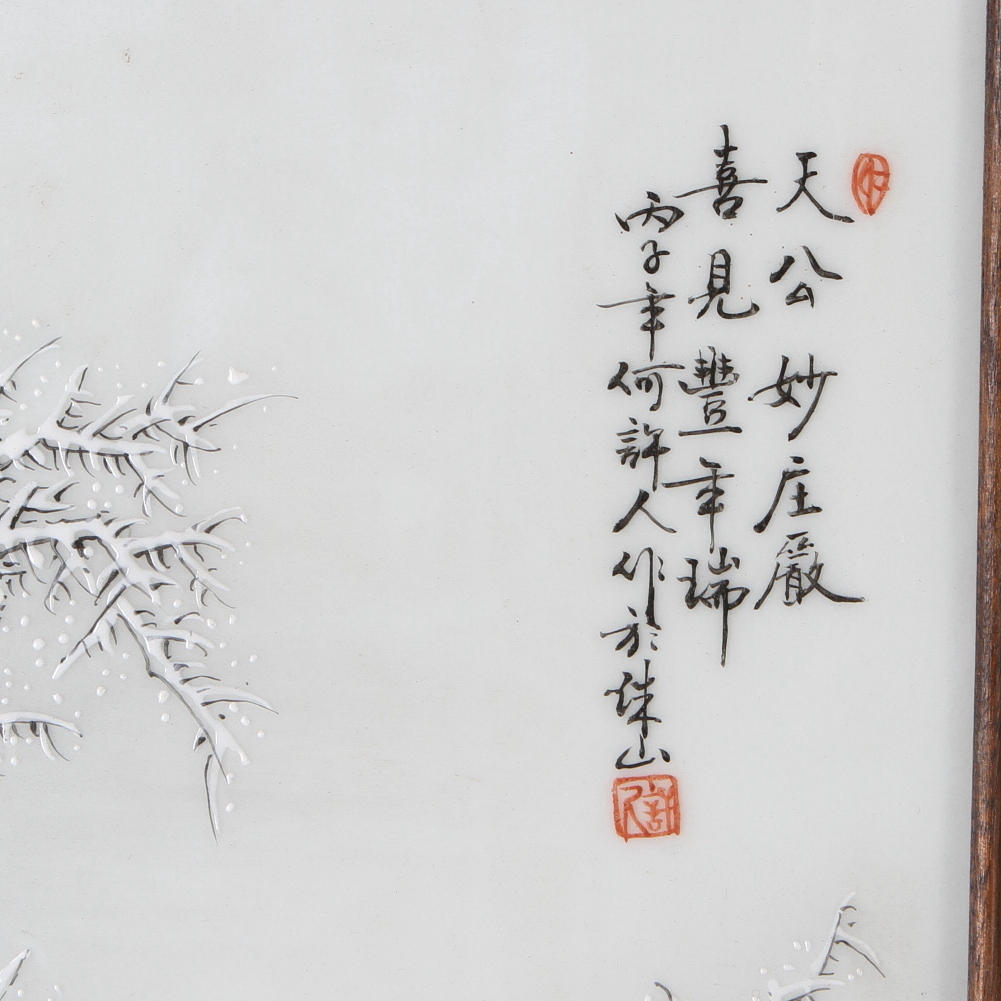 天公妙庄嚴
喜見豐年瑞
丙子年何許人作於珠山
許人